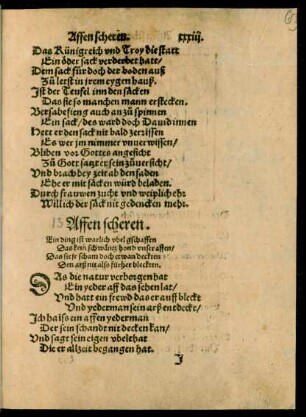 Affen scheren. xxxiij.
Das Künigreich vnd Troy die statt
Ein öder sack verderbet hatt/
Dem sack für doch der boden auß
Zů letst in jrem eygen hauß.
Ist der Teufel inn den säcken
Das sie so manchen mann erstecken.
Bersabe fieng auch an zů spinnen
Ein sack/ des ward doch Dauid innen
Hett er den sack nit bald zerissen
Es wer jm nimmer vnuerwissen/
Bliben vor Gottes angesicht
Zů Gott satzt er sein zůuersicht/
Vnd brach bey zeit ab den faden
Ehe er mit säcken würd beladen.
Durch frauwen zucht vnd weiplich ehr
Will ich der säck nit gedencken mehr.
Affen scheren.
Ein ding ist warlich vbel gschaffen
Das kein schwäntz hond vnser affen/
Das sie jr scham doch etwan deckten
Den arß nit also fürher bleckten.
DAs die natur verborgen hat
Ein yeder aff das sehen lat/
Vnd hatt ein frewd das er auff bleckt
Vnd yederman sein arß entdeckt/
Ich haiß ein affen yederman
Der sein schandt nit decken kan/
Vnd sagt sein eigen vbelthat
Die er allzeit begangen hat.
J